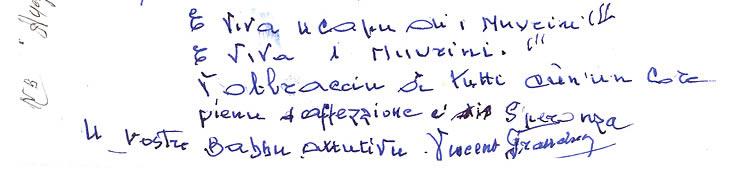 E viva u capu di i Muvrini!!
E viva i Muvrini. !!
V'abbracciu à tutti cùn'un core
pienu d'affezzione è di Speranza
U vostru Babbu attutivu. Vincent
NB